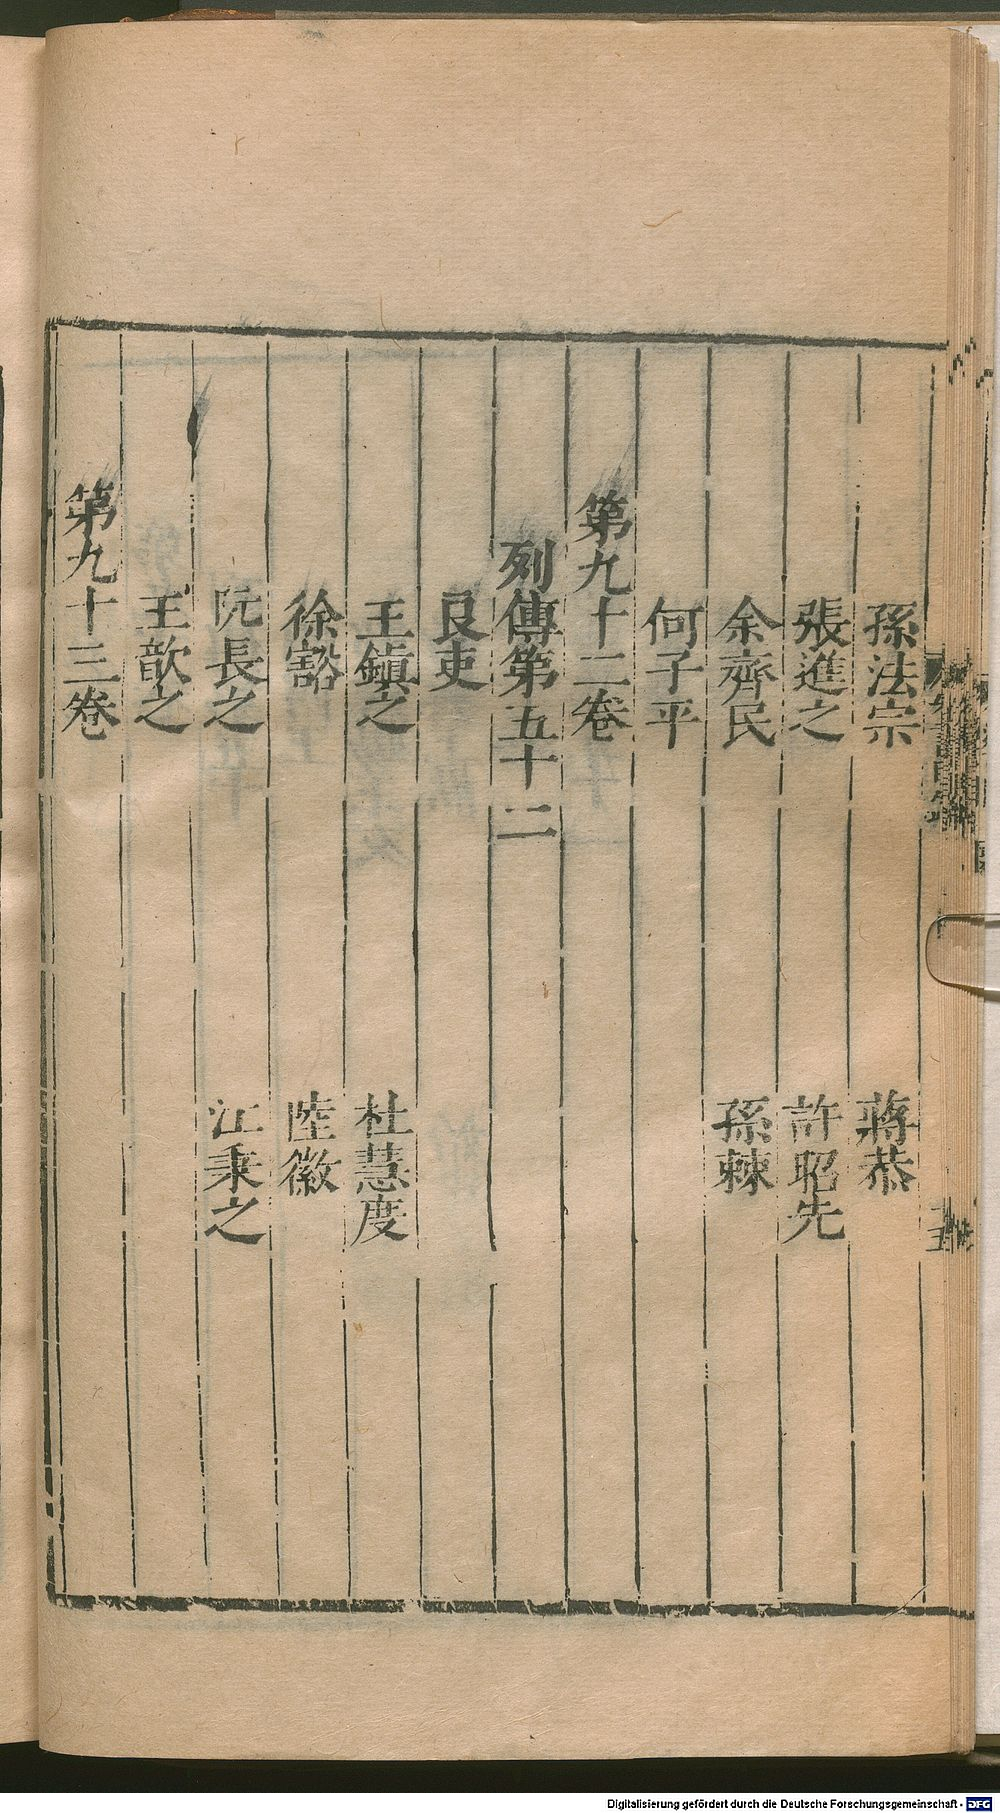 孫法宗 蔣恭
張進之 許昭先
余齊民 孫棘
何子平
第九十二卷
列傳第五十二
良吏
王鎭之 杜慧度
徐豁 陸徽
阮長之 江秉之
王歆之
第九十三卷
Digitalisierung gefördert durch die Deutsche Forschungsgemeinschaft - DFG